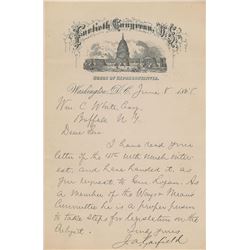 Fortieth Congress, U.S.
HOUSE OF REPRESENTATIVES.
Washington, D.C. June 8 1868.
Wm. C White Esq
Buffalo N. Y.
Dear Sir
I have read your
letter of the 4th with much inter
est, and have handed it, as
you request to Gen. As
a member of the Ways & Means
Committee he is a proper person
to take steps for legislation on the
subject.
Truly yours
J. A. Garfield